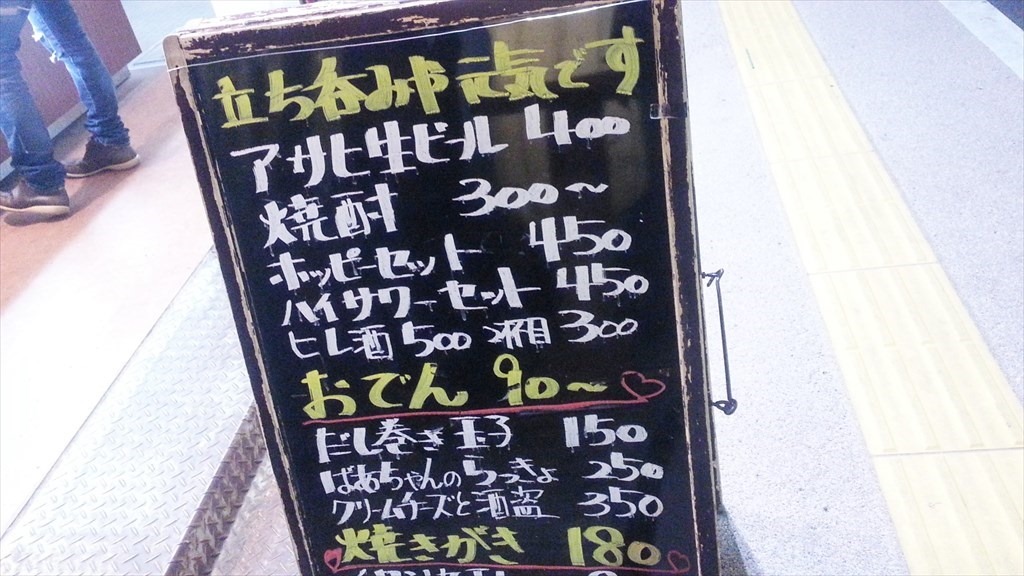 立ち呑みや元気です
アサヒ生ビール 400
焼酎 300〜
ホッピーセット 450
ハイサワーセット 450
ヒレ酒 500 300
おでん 90〜
だし巻き玉子 150
ばあちゃんのらっきょ 250
クリームチーズと酒盗 350
焼きがき 180